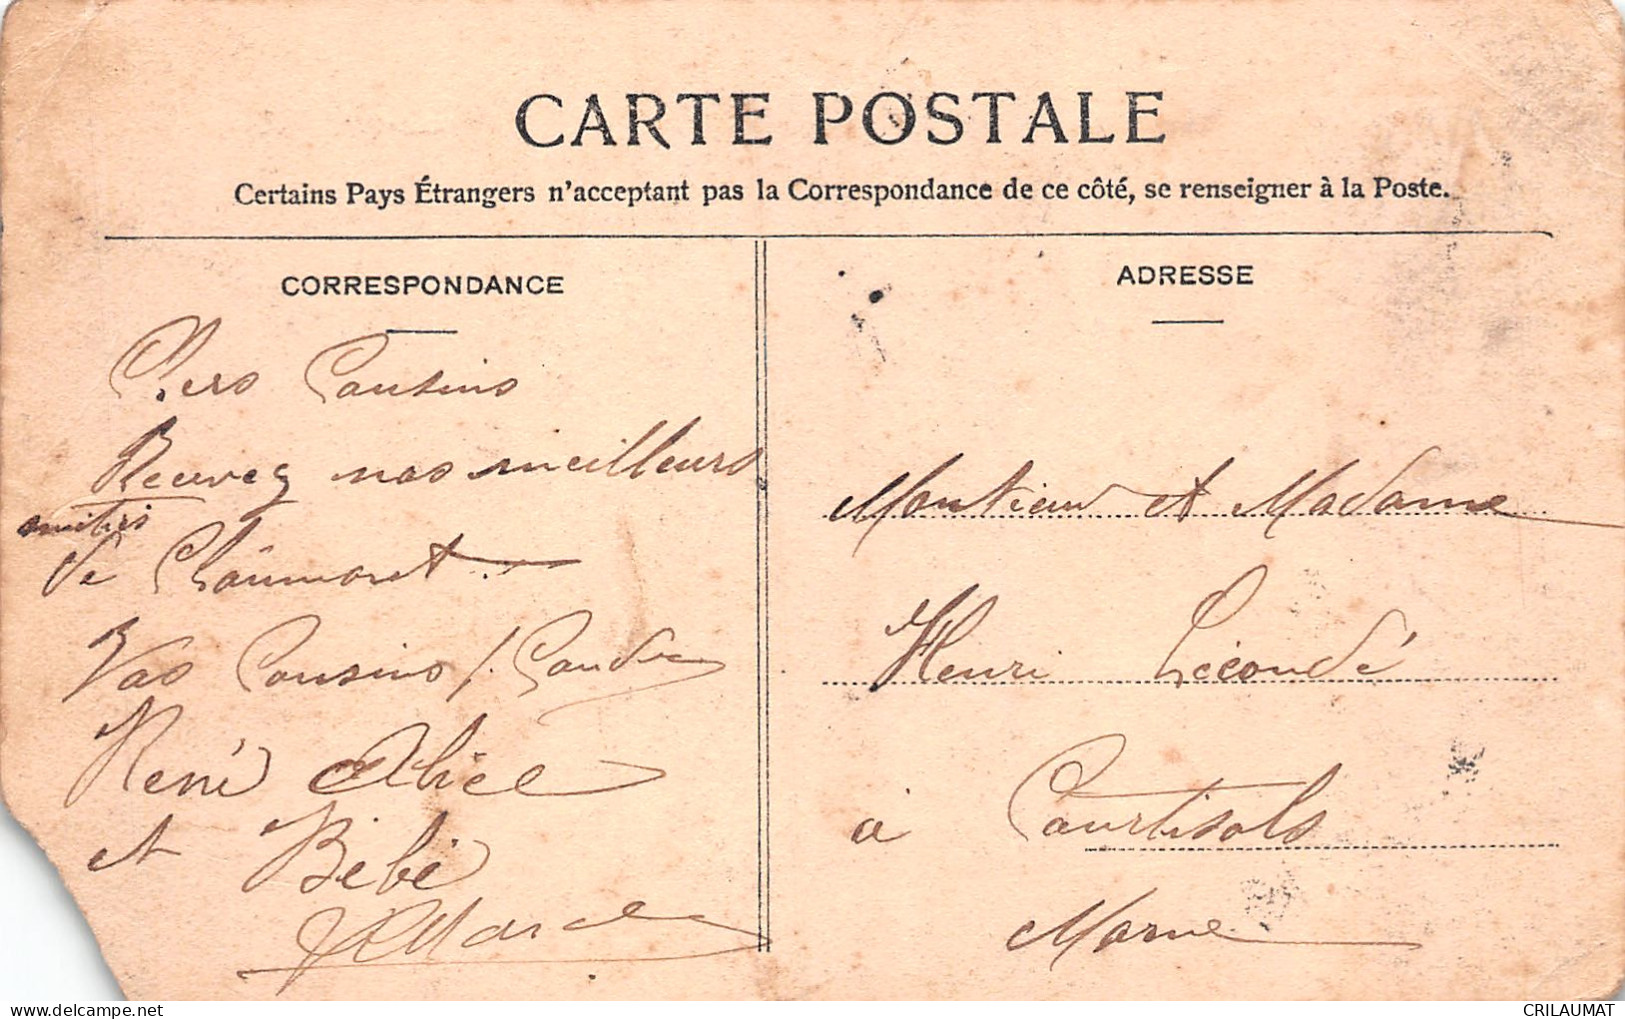 CARTE POSTALE
Certains Pays Étrangers n'acceptant pas la Correspondance de ce côté, se renseigner à la Poste.
CORRESPONDANCE
Chers Cousins
Recevez nos meilleurs
amitiés
de Chaumont
Vos Cousins
René Alice
et Bébé
Marcel
ADRESSE
Monsieur et Madame
Henri Lécondé
à Courtisols
Marne
CRILAUMAT